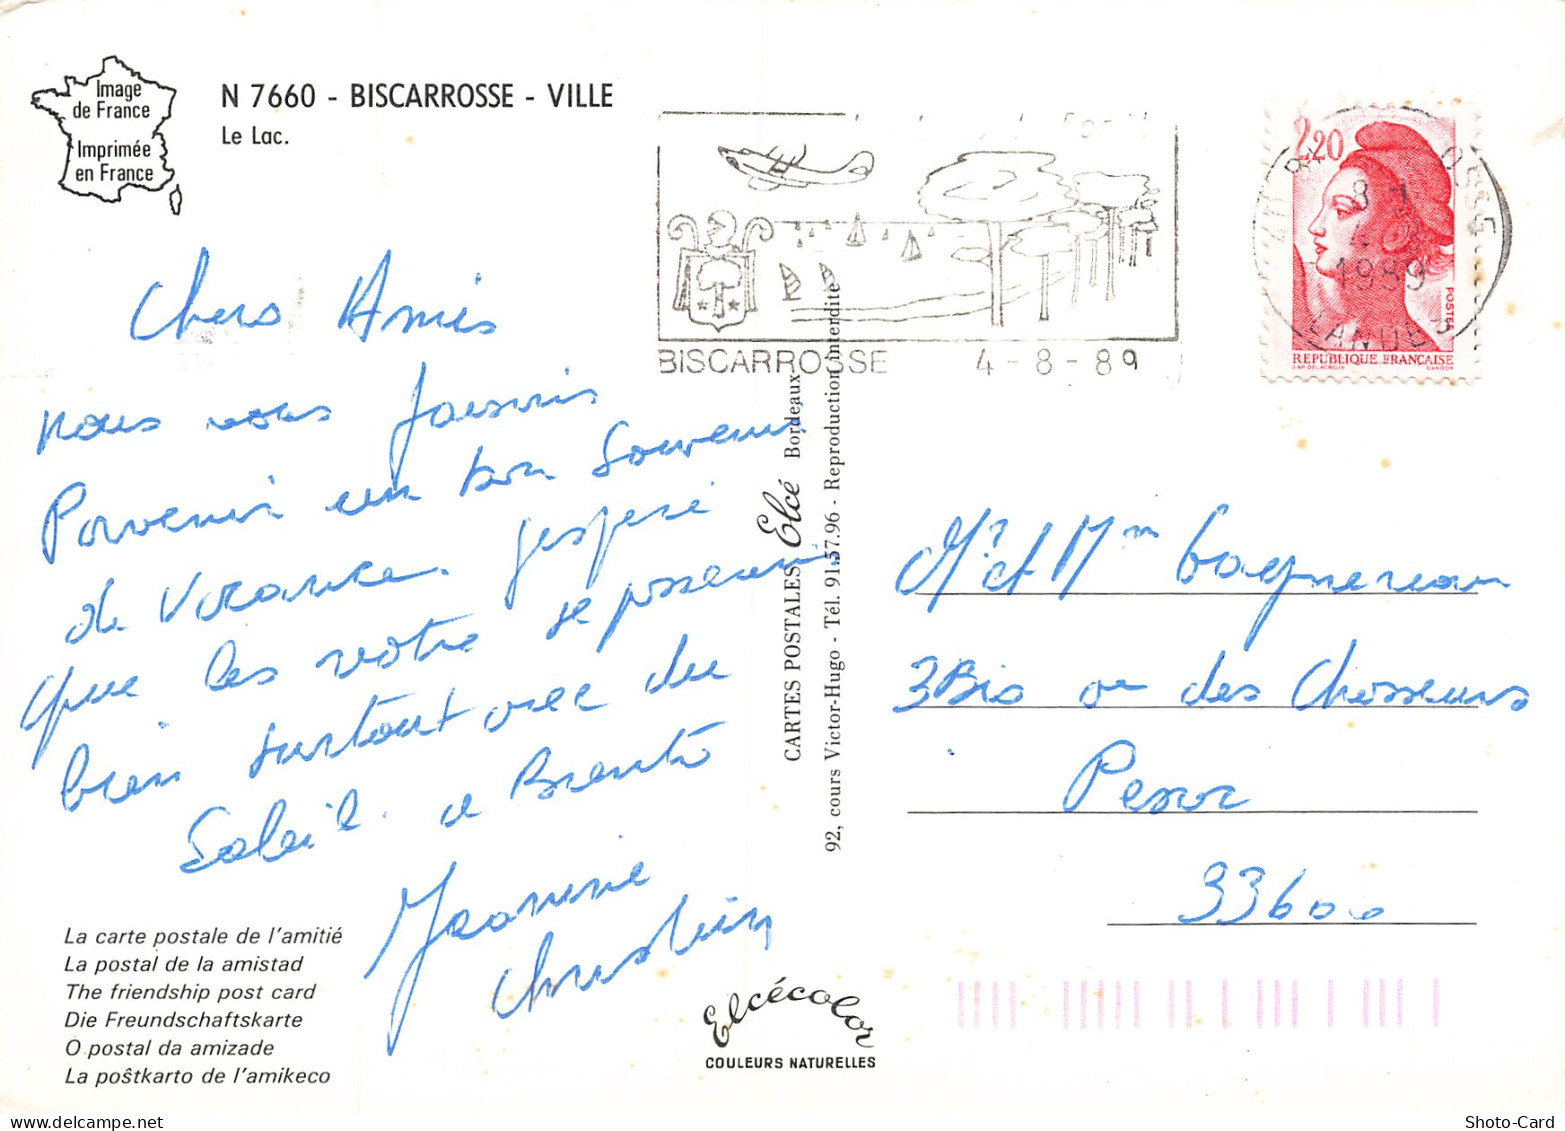 Image
de France
Imprimée
en France
N 7660 - BISCARROSSE - VILLE
Le Lac.
BISCARROSSE 4-8-89
2,20
1989
LANDES
POSTES
REPUBLIQUE FRANÇAISE
Chers Amis
nous vous faisons
Parvenir un bon Souvenir
de Vacance. J'espere
que les votre se passerai
bien surtout avec du
Soleil. a Bientô
Jeannine
Christian
CARTES POSTALES Elcé Bordeaux
92, cours Victor-Hugo - Tél. 91.57.96 - Reproduction interdite
Mr et Mme
3Bis rue des Chasseurs
Pessac
33600
La carte postale de l'amitié
La postal de la amistad
The friendship post card
Die Freundschaftskarte
O postal da amizade
La poŝtkarto de l'amikeco
Elcécolor
COULEURS NATURELLES
Shoto-Card